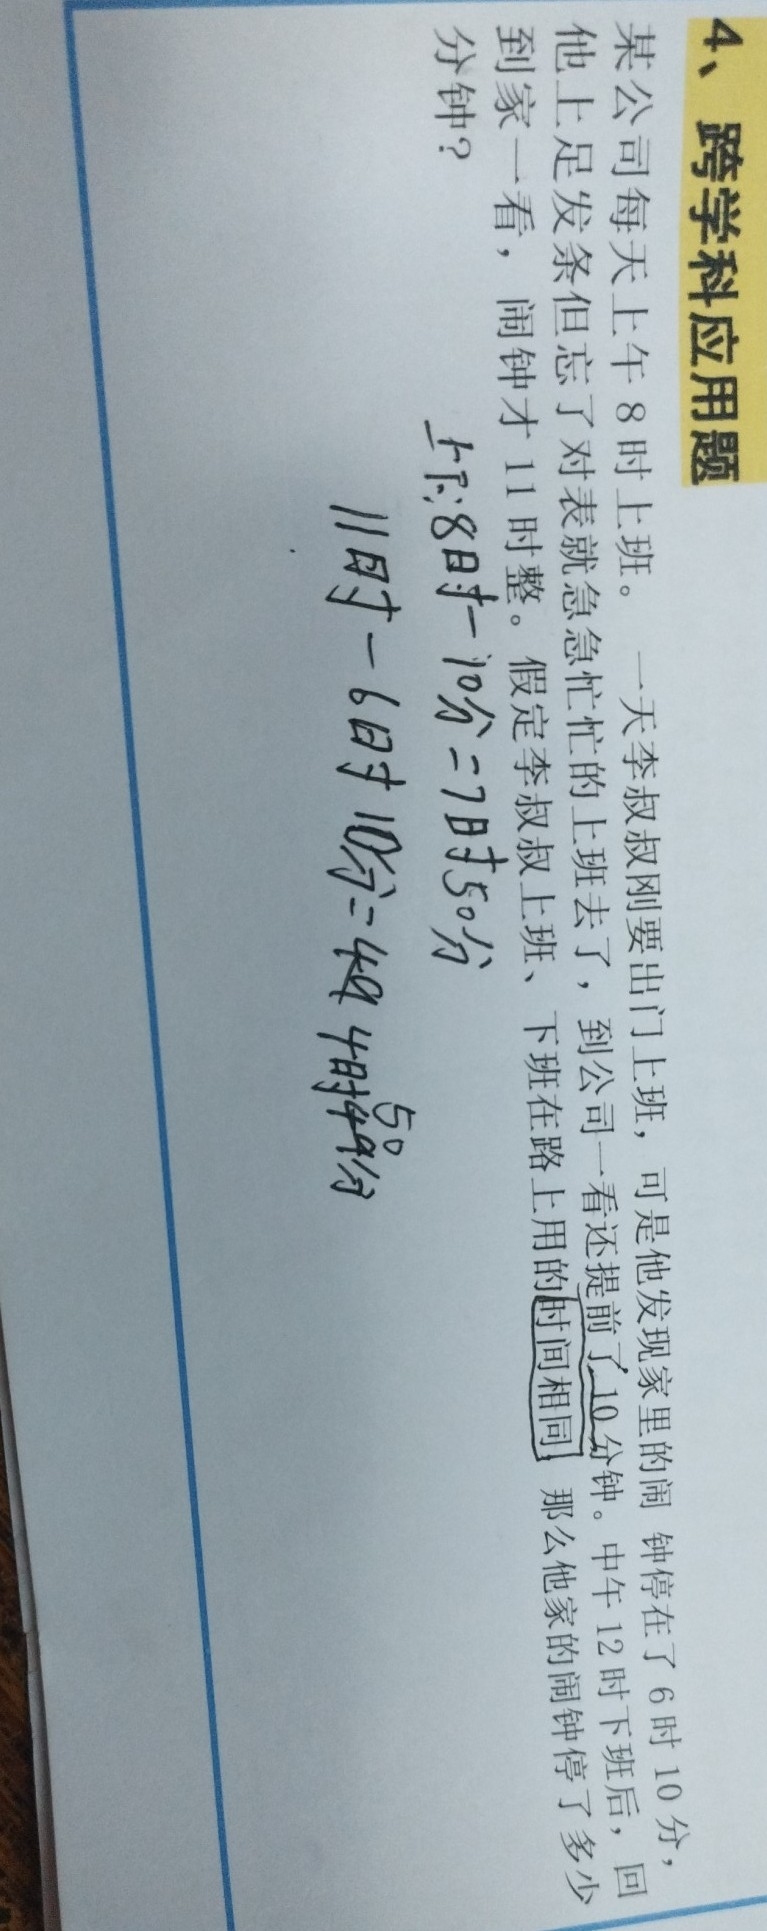 4、跨学科应用题
某公司每天上午8时上班。一天李叔叔刚要出门上班，可是他发现家里的闹 钟停在了6时10分，
他上足发条但忘了对表就急急忙忙的上班去了，到公司一看还提前了10分钟。中午12时下班后，回
到家一看，闹钟才11时整。假定李叔叔上班、下班在路上用的时间相同，那么他家的闹钟停了多少
分钟？
8时-10分=7时50分
11时-6时10分=4时50分